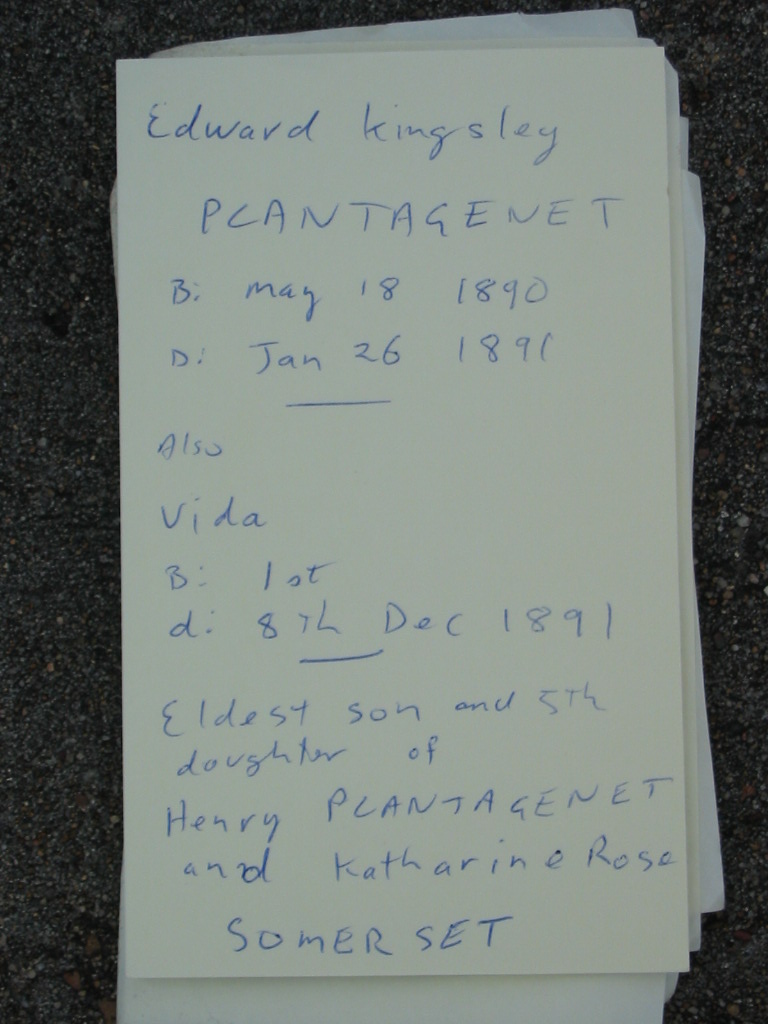 Edward Kingsley
PLANTAGENET
B: may 18 1890
D: Jan 26 1891
Also
Vida
B: 1st
d: 8Th Dec 1891
Eldest son and 5Th
daughter of
Henry PLANTAGENET
and Katharine Rose
SOMERSET